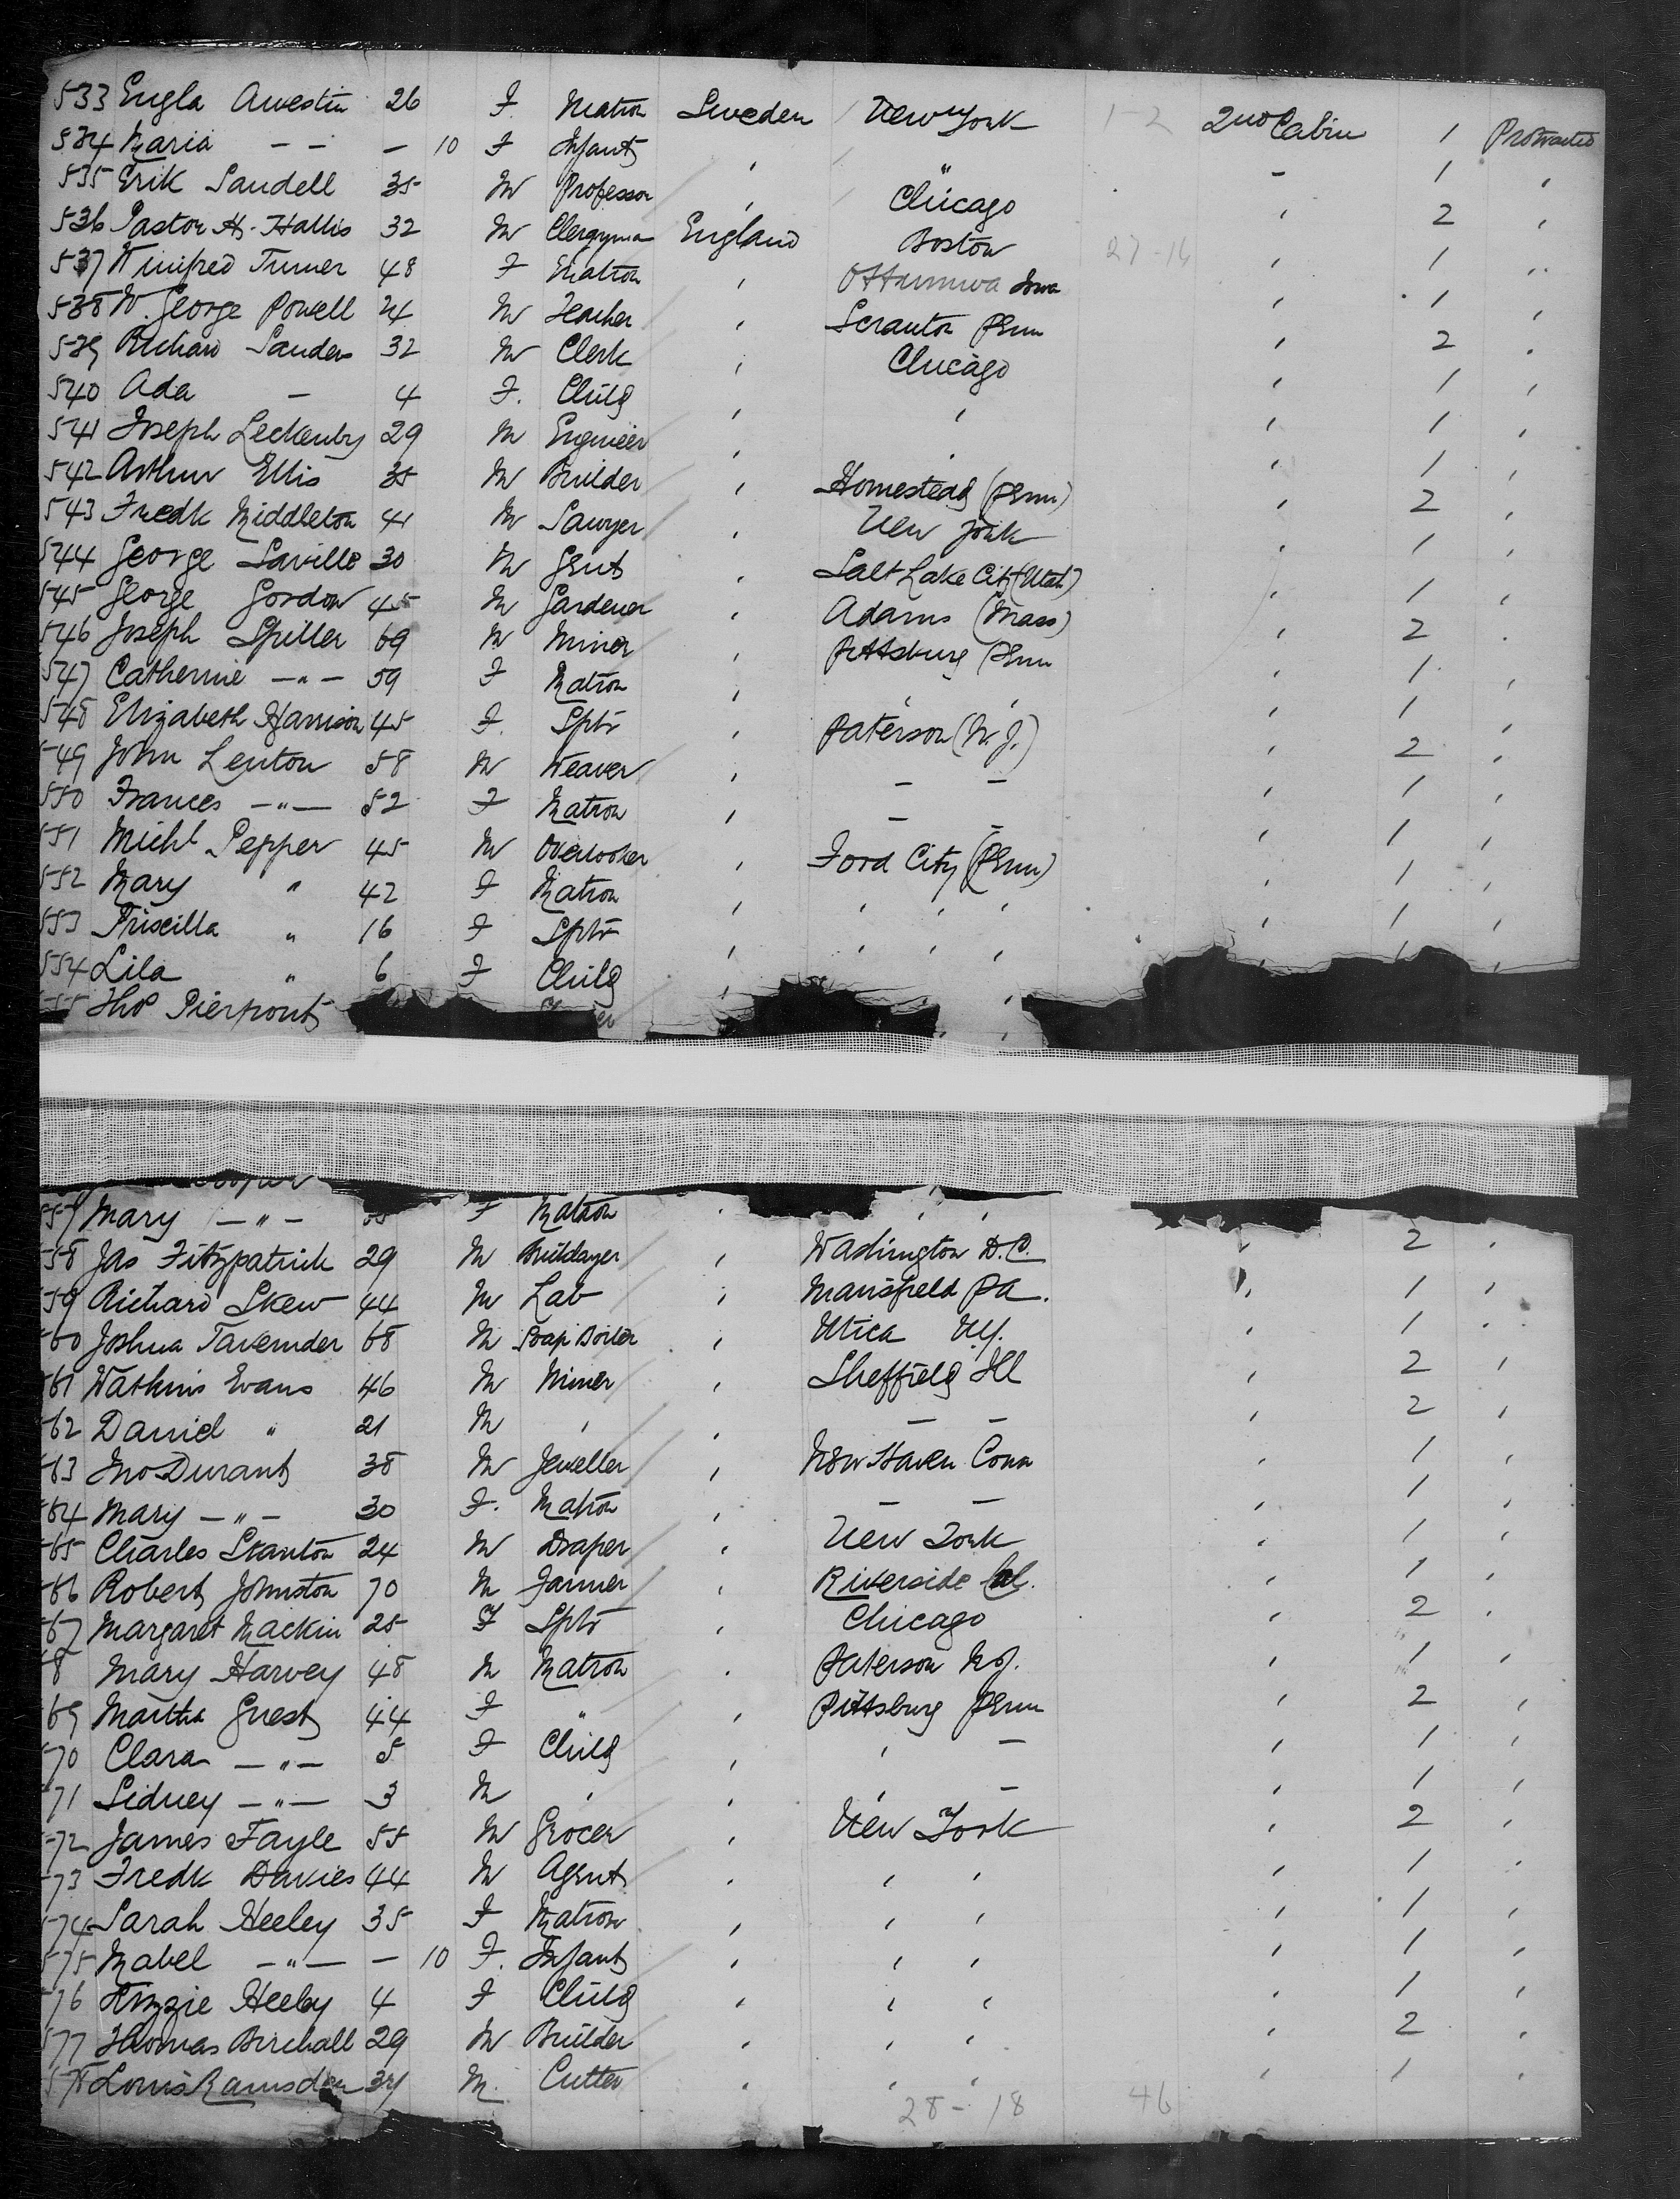 533 Engla Awestin 26 F. Matron Sweden New York 1-2 2nd Cabin 1 Protracted
534 Maria - - - 10 F Infant , " - 1 ,
535 Erik Sandell 35 M Professor , Chicago , 2 ,
536 Pastor H. Hallis 32 M Clergyman England Boston 27-16 , 1 ,,
537 Winifred Turner 48 F Matron , Ottumwa Iowa , 1 ,
538 W. George Powell 24 M Teacher , Scranton Penn , 2 ,
539 Richard Sanders 32 M Clerk , Chicago , 1 ,
540 Ada - 4 F. Child , , , 1 ,
541 Joseph Leckenby 29 M Engineer , , , 1 ,
542 Arthur Ellis 35 M Builder , Homestead (Penn) , 2 ,
543 Fredk Middleton 41 M Sawyer , New York , 1 ,
544 George Saville 30 M Gent , Salt Lake City (Utah) , 1 ,
545 George Gordon 45 M Gardener , Adams (Mass) , 2 .
546 Joseph Spiller 69 M Miner , Pittsburg (Penn , 1 ,
547 Catherine -"- 59 F Matron , , , , 1 ,
548 Elizabeth Harrison 45 F. Sptr , Paterson (N.J.) , 2 ,
549 John Lenton 58 M Weaver , - - , 1 ,
550 Frances -"- 52 F Matron , - - , 1 ,
551 Michl Pepper 45 M Overlooker , Ford City (Penn) , 1 ,
552 Mary " 42 F Matron , , , , , 1 ,
553 Priscilla " 16 F Sptr , , , , ,
554 Lila " 6 F Child , , ,
Thos Pierpont
Mary -"- F Matron , , , , 2 ,
58 Jas Fitzpatrick 29 M Bricklayer , Washington D.C. , 1 ,
59 Richard Skew 44 M Lab , Mansfield Pa. , 1 ,
60 Joshua Tavernder 68 M Soap Boiler , Utica N.Y. , 2 ,
61 Watkins Evans 46 M Miner , Sheffield Ill , 2 ,
62 Daniel " 21 M , , - - , 1 ,
63 Jno Durant 38 M Jeweller , New Haven Conn , 1 ,
64 Mary -"- 30 F. Matron , - - , 1 ,
65 Charles Stanton 24 M Draper , New York , 1 ,
66 Robert Johnston 70 M Farmer , Riverside Cal. , 2 ,
67 Margaret Mackin 25 F Sptr , Chicago , 1 ,
8 Mary Harvey 48 M Matron , Paterson N.J. , 2 ,
69 Martha Guest 44 F " , Pittsburg Penn , 1 ,
70 Clara -"- 5 F Child , , - , 1 ,
71 Sidney -"- 3 M , , , - , 2 ,
572 James Fayle 55 M Grocer , New York , 1 ,
73 Fredk Davies 44 M Agent , , , , 1 ,
574 Sarah Heeley 35 F Matron , , , , 1 ,
575 Mabel -"- - 10 F. Infant , , , , 1 ,
576 Lizzie Heeley 4 F Child , , , , 2 ,
577 Thomas Birchall 29 M Builder , , , , 1 ,
578 Louis Ramsden 34 M. Cutter , , ,
28-18 46